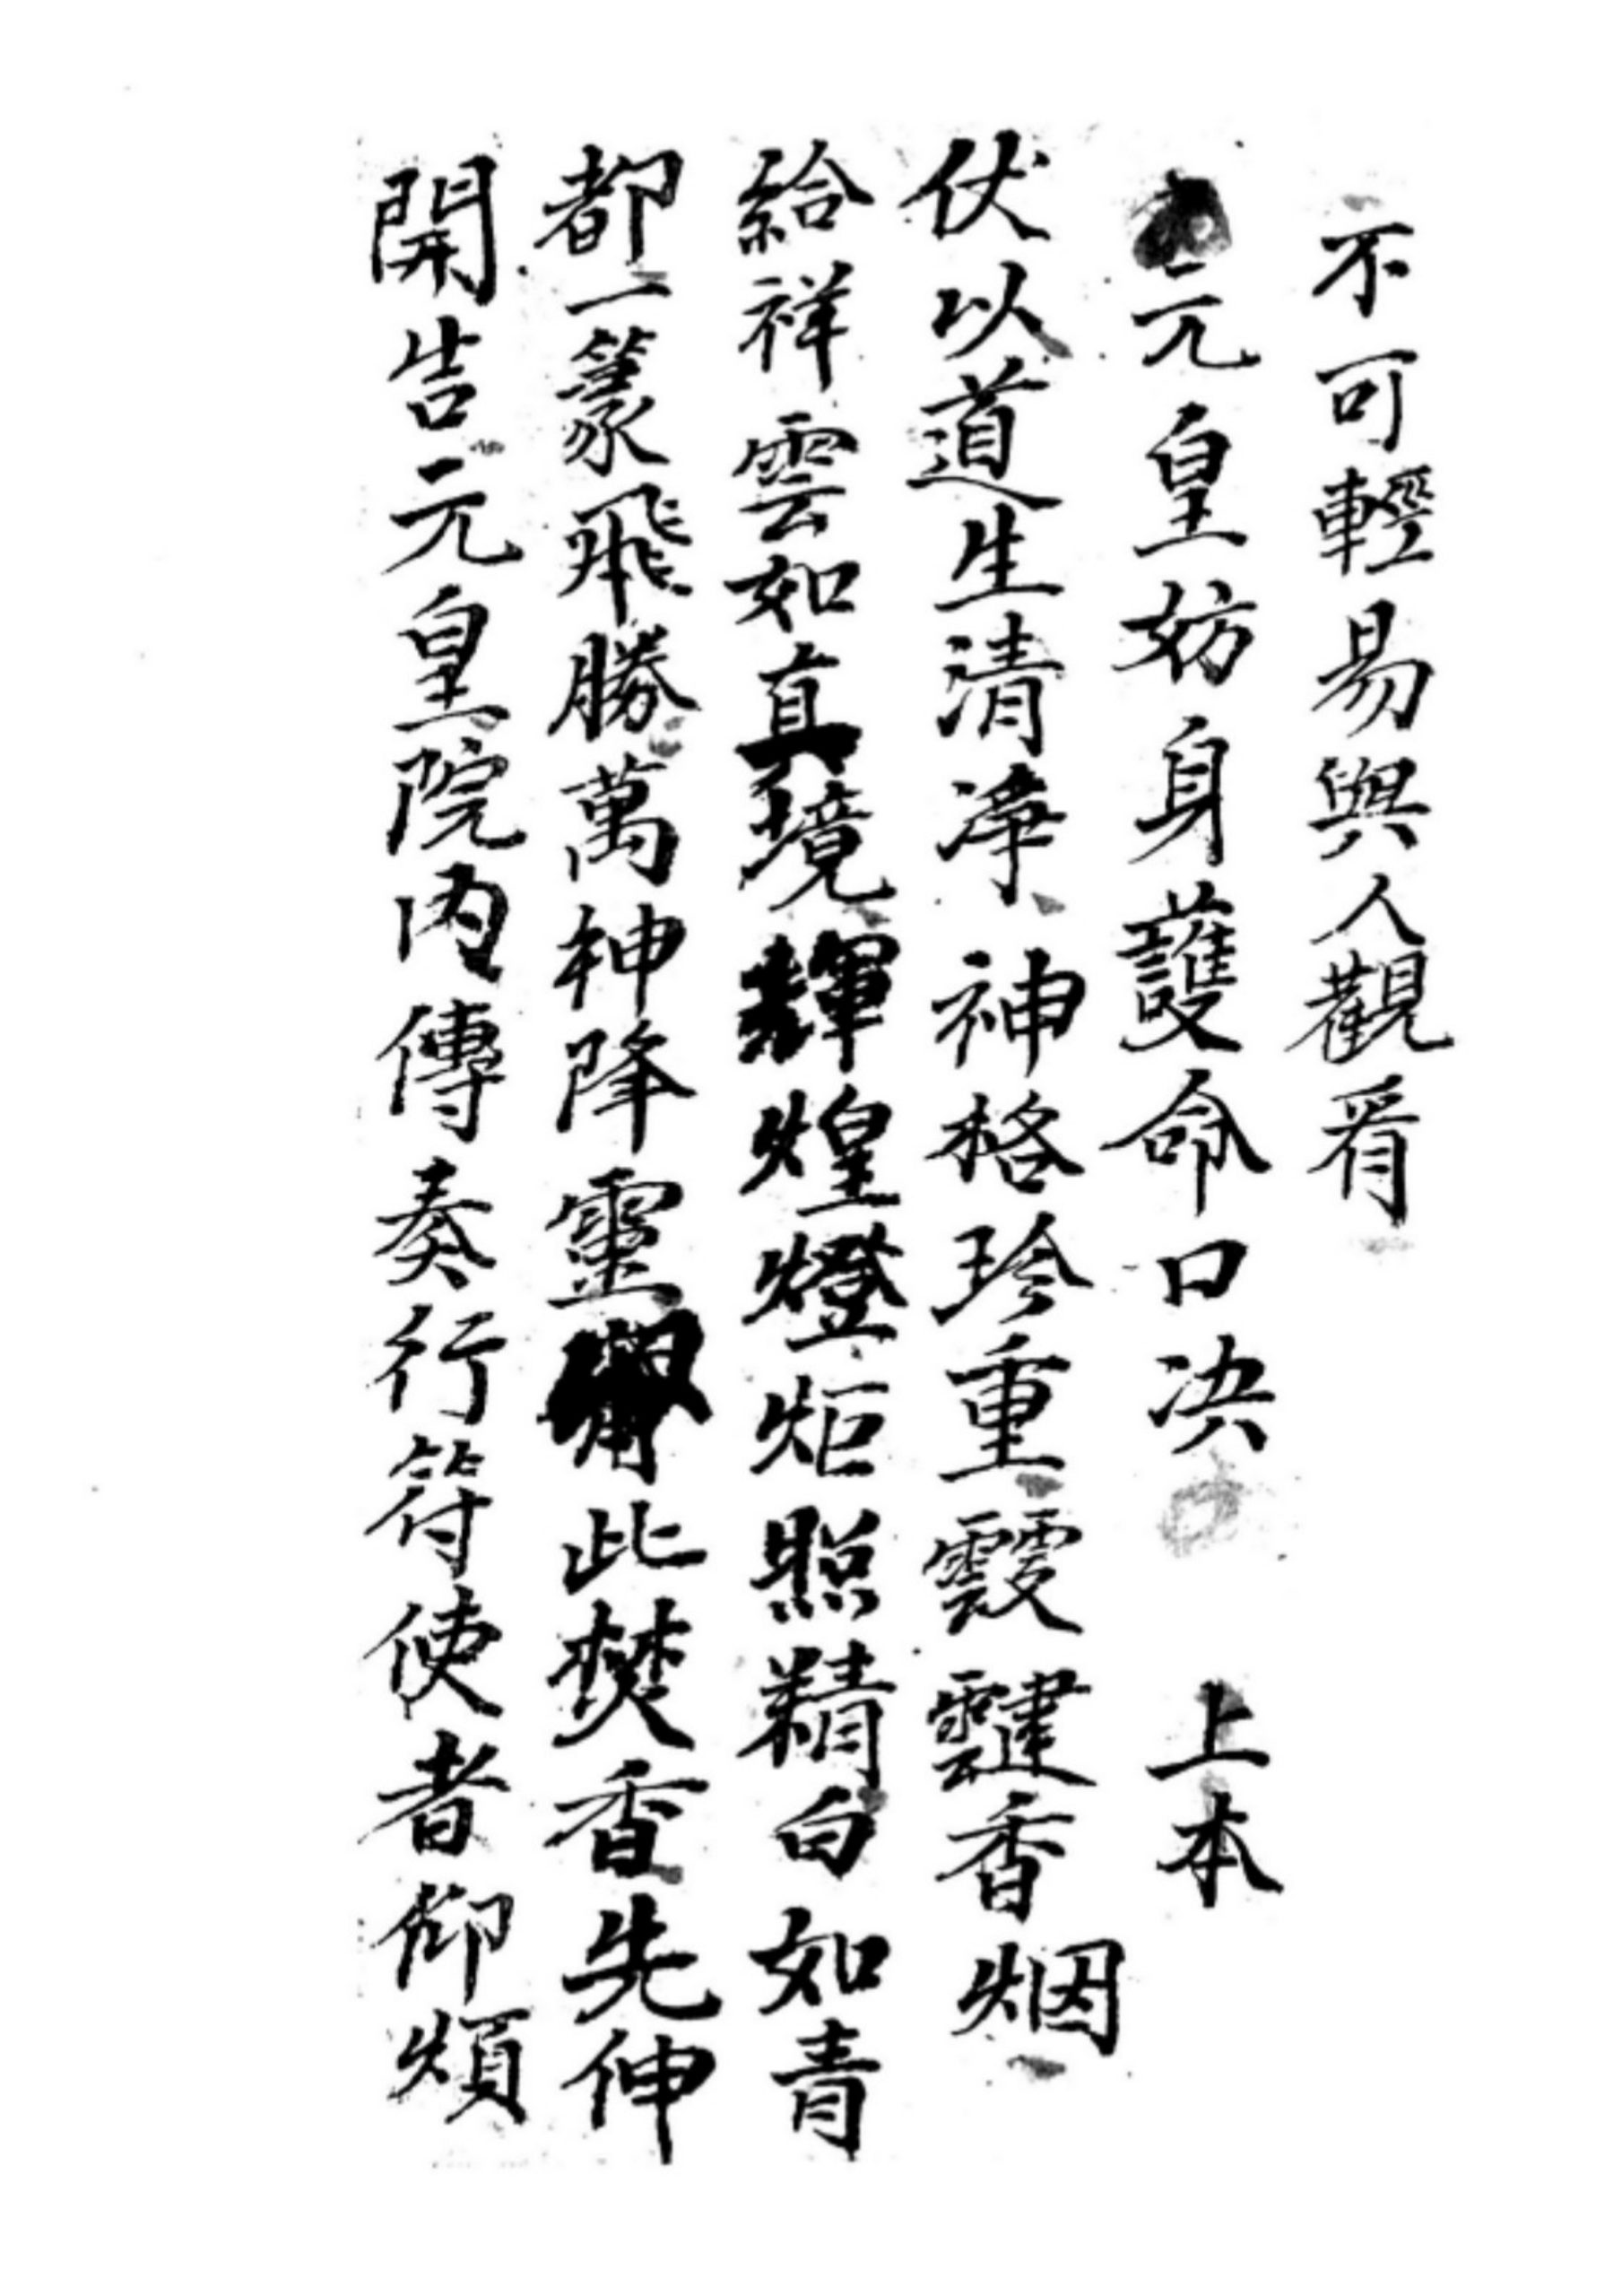 不可輕易與人觀看
元皇妨身護命口决 上本
伏以道生清淨神格珍重靉靆香烟
給祥雲如真境輝煌燈炬照精白如青
都一篆飛勝萬神降靈此焚香先伸
開告元皇院內傳奏行符使者仰煩